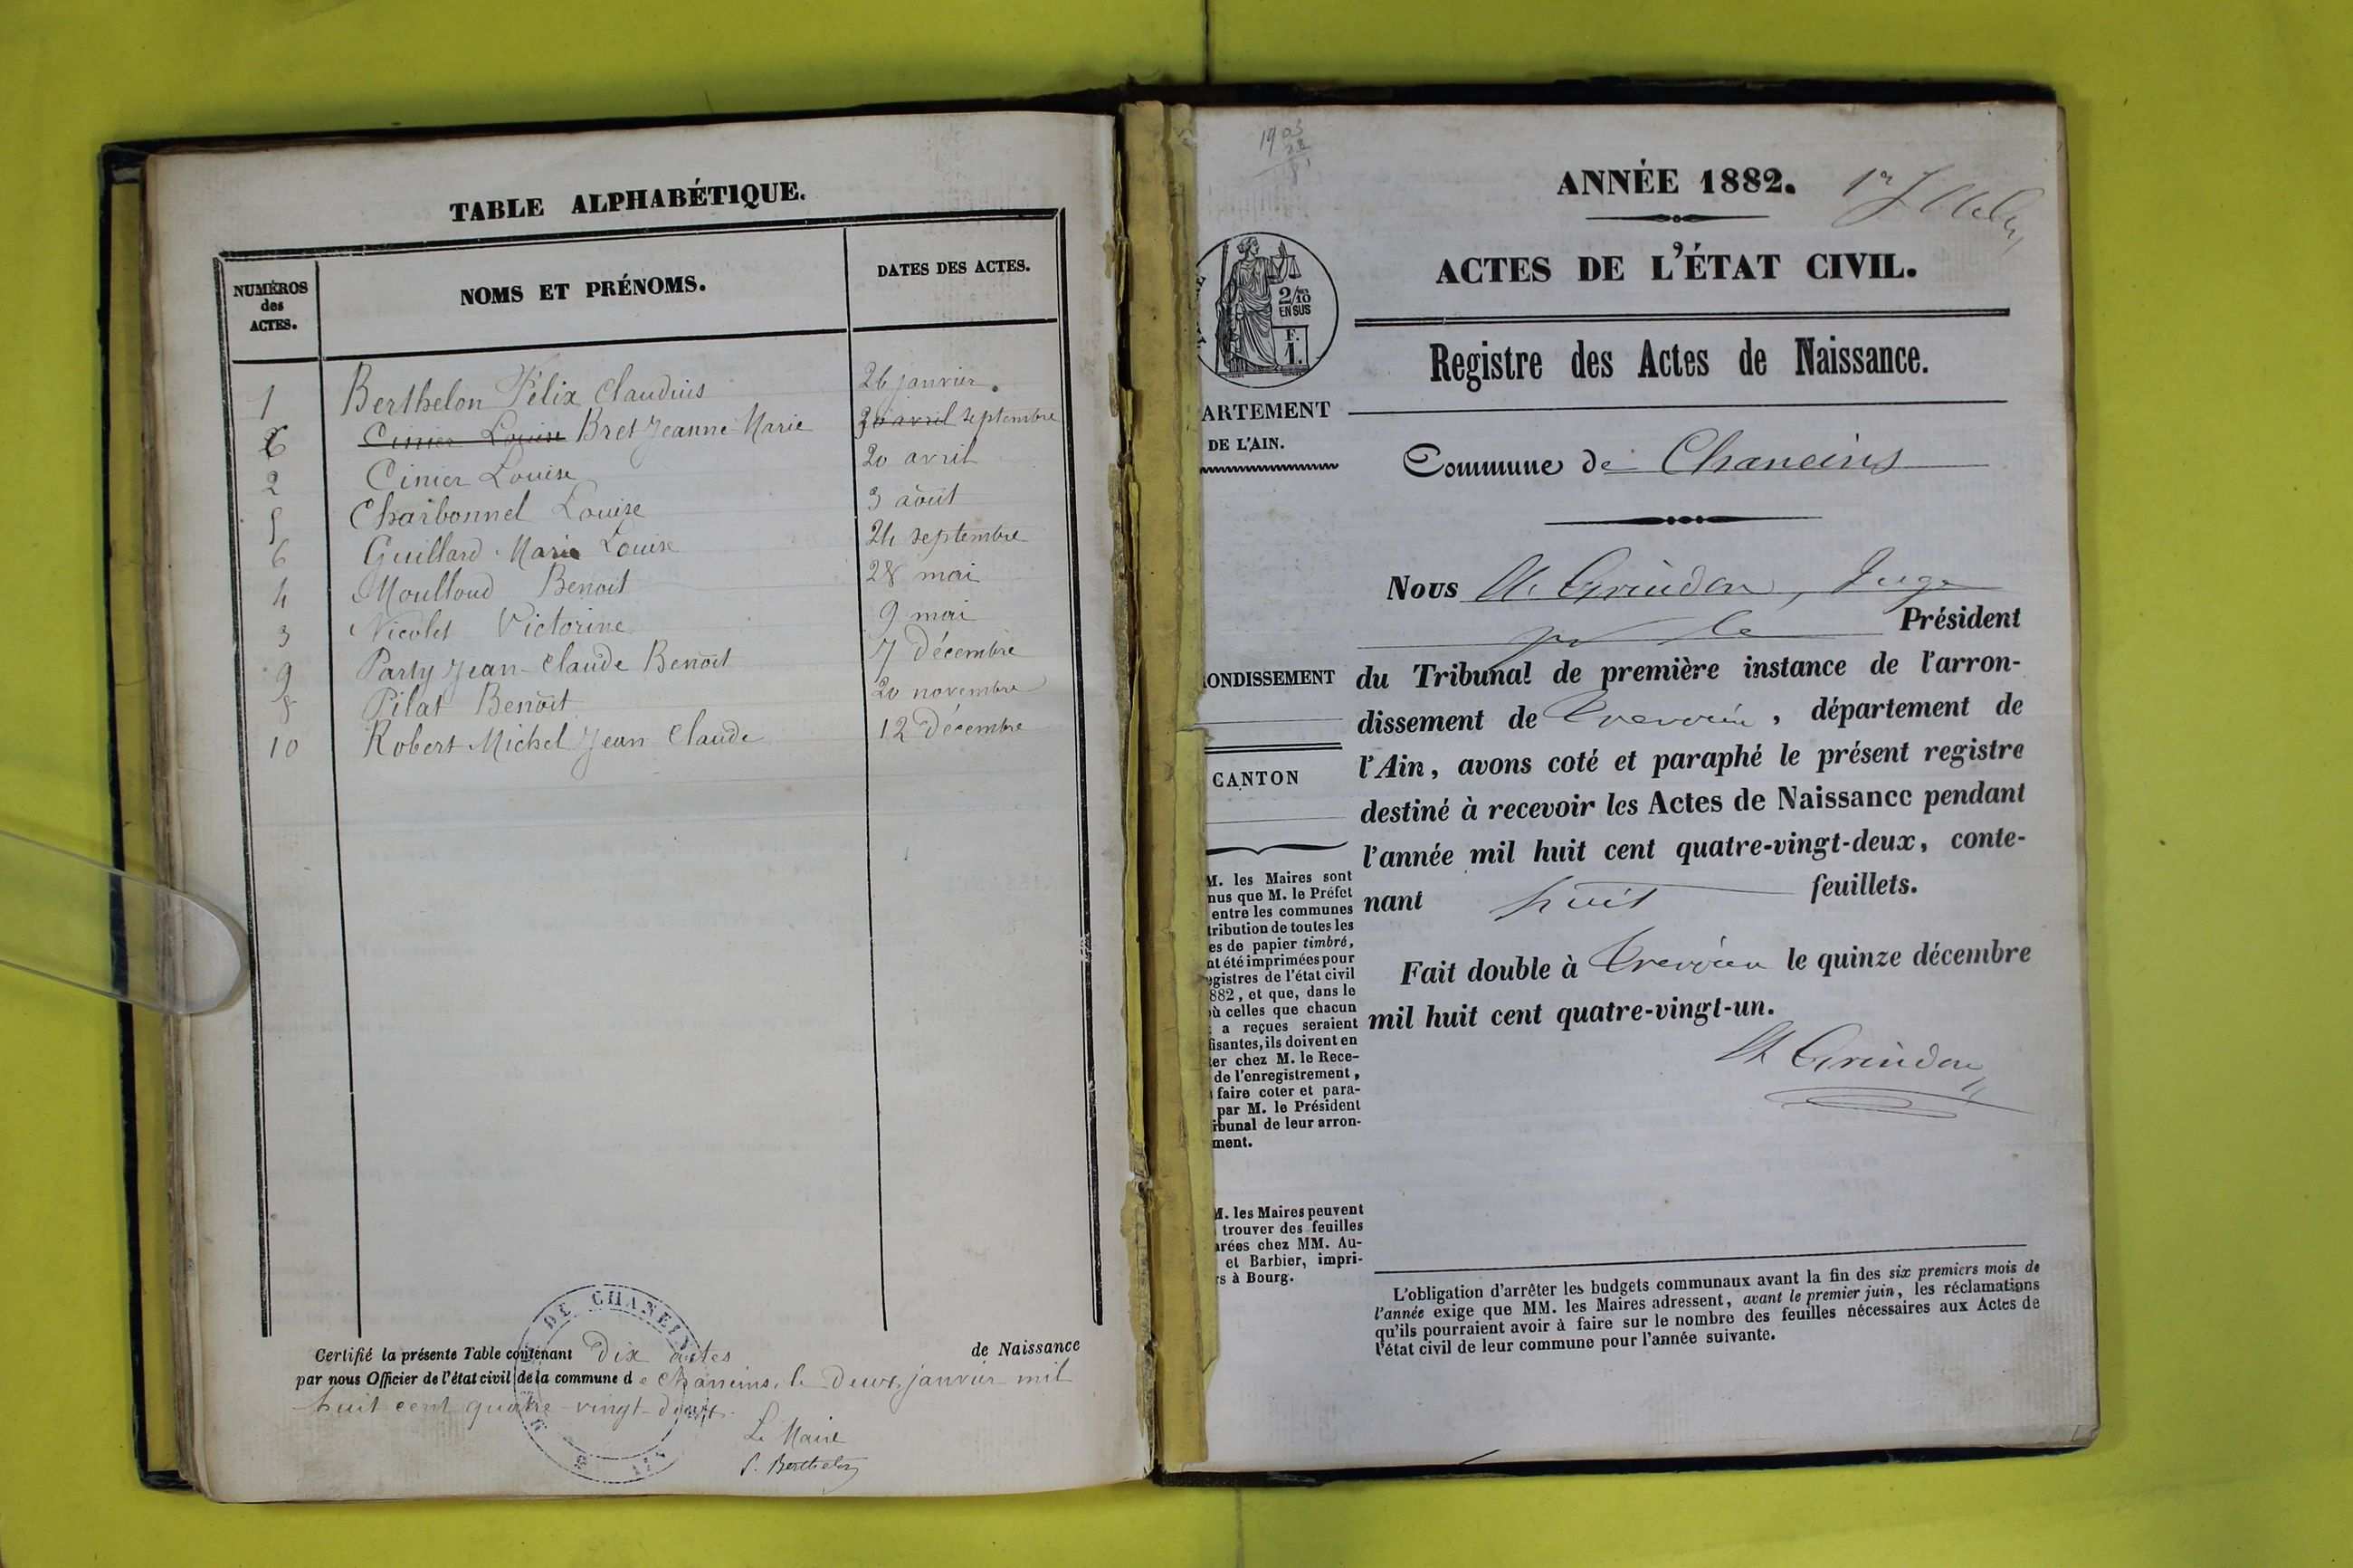 TABLE ALPHABÉTIQUE.
NUMÉROS
des
ACTES.
NOMS ET PRÉNOMS.
DATES DES ACTES.
1 Berthelon Félix Claudius 26 janvier.
6 Cinier Louise Bret Jeanne Marie 20 avril septembre
2 Cinier Louise 20 avril
5 Charbonnel Louise 3 août
6 Guillard Marie Louise 24 septembre
4 Moulloud Benoit 28 mai
3 Nicolet Victorine 9 mai
9 Party Jean-Claude Benoît 7 Décembre
8 Pilat Benoît 20 novembre
10 Robert Michel Jean Claude 12 Décembre
Certifié la présente Table contenant Dix actes de Naissance
par nous Officier de l'état civil de la commune de Chaneins, le Deux janvier mil
huit cent quatre-vingt-deux.
Le Maire
P. Berthelon
DE CHANEINS
ANNÉE 1882.
1er
ACTES DE L'ÉTAT CIVIL.
2/10
EN SUS
F.
1.
Registre des Actes de Naissance.
ARTEMENT
DE L'AIN.
Commune de Chaneins
Nous M. Grindon, Juge
pr le Président
RONDISSEMENT
du Tribunal de première instance de l'arron-
dissement de Trévoux, département de
l'Ain, avons coté et paraphé le présent registre
CANTON
destiné à recevoir les Actes de Naissance pendant
l'année mil huit cent quatre-vingt-deux, conte-
nant huit feuillets.
Fait double à Trévoux le quinze décembre
mil huit cent quatre-vingt-un.
M Grindon
M. les Maires sont
nus que M. le Préfet
entre les communes
tribution de toutes les
es de papier timbré,
nt été imprimées pour
egistres de l'état civil
882, et que, dans le
où celles que chacun
a reçues seraient
fisantes, ils doivent en
ter chez M. le Rece-
de l'enregistrement,
faire coter et para-
par M. le Président
ribunal de leur arron-
ment.
M. les Maires peuvent
trouver des feuilles
arées chez MM. Au-
et Barbier, impri-
rs à Bourg.
L'obligation d'arrêter les budgets communaux avant la fin des six premiers mois de
l'année exige que MM. les Maires adressent, avant le premier juin, les réclamations
qu'ils pourraient avoir à faire sur le nombre des feuilles nécessaires aux Actes de
l'état civil de leur commune pour l'année suivante.